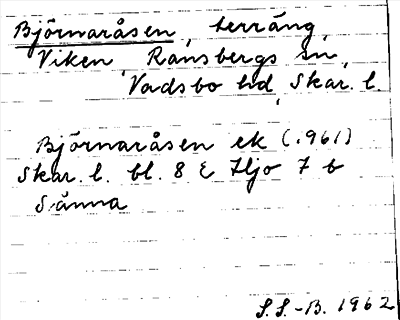 Björnaråsen, terräng,
Viken, Ransbergs sn,
Vadsbo hd, Skar. l.
Björnaråsen ek (.961)
Skar. l. bl. 8 E Hjo 7 b
S änna
S.S.-B. 1962